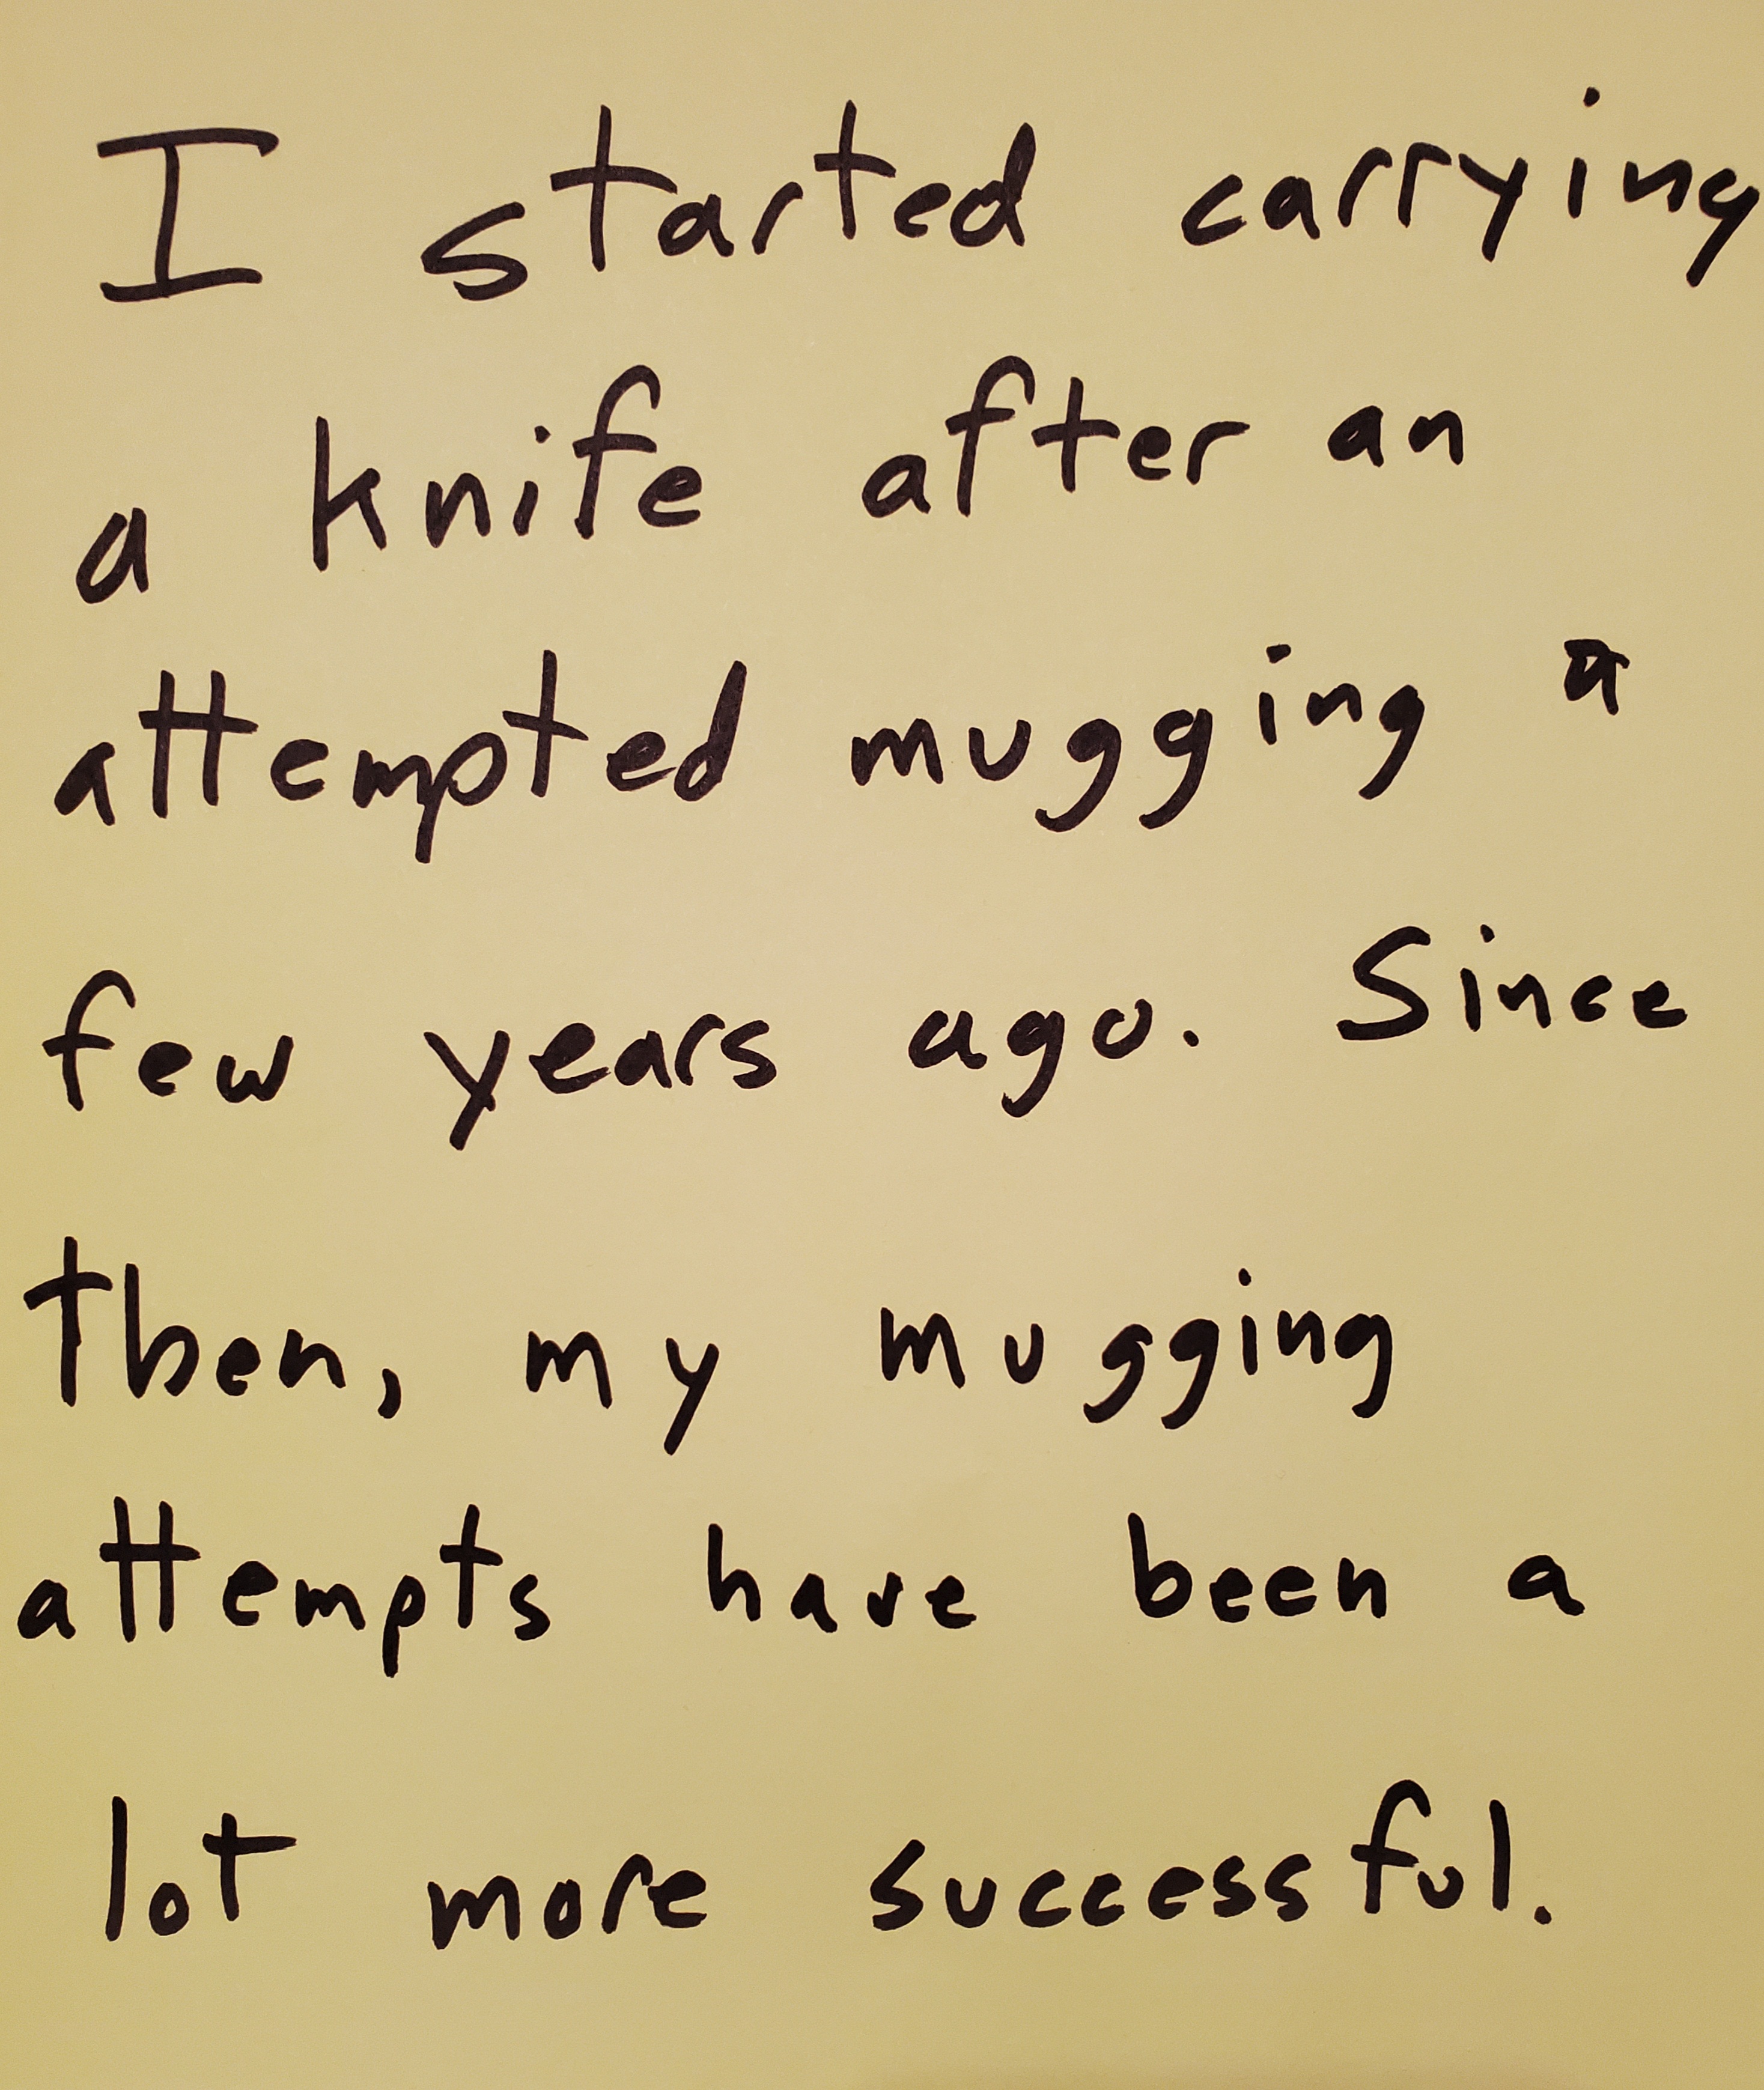 I started carrying
a knife after an
attempted mugging a
few years ago. Since
then, my mugging
attempts have been a
lot more successful.